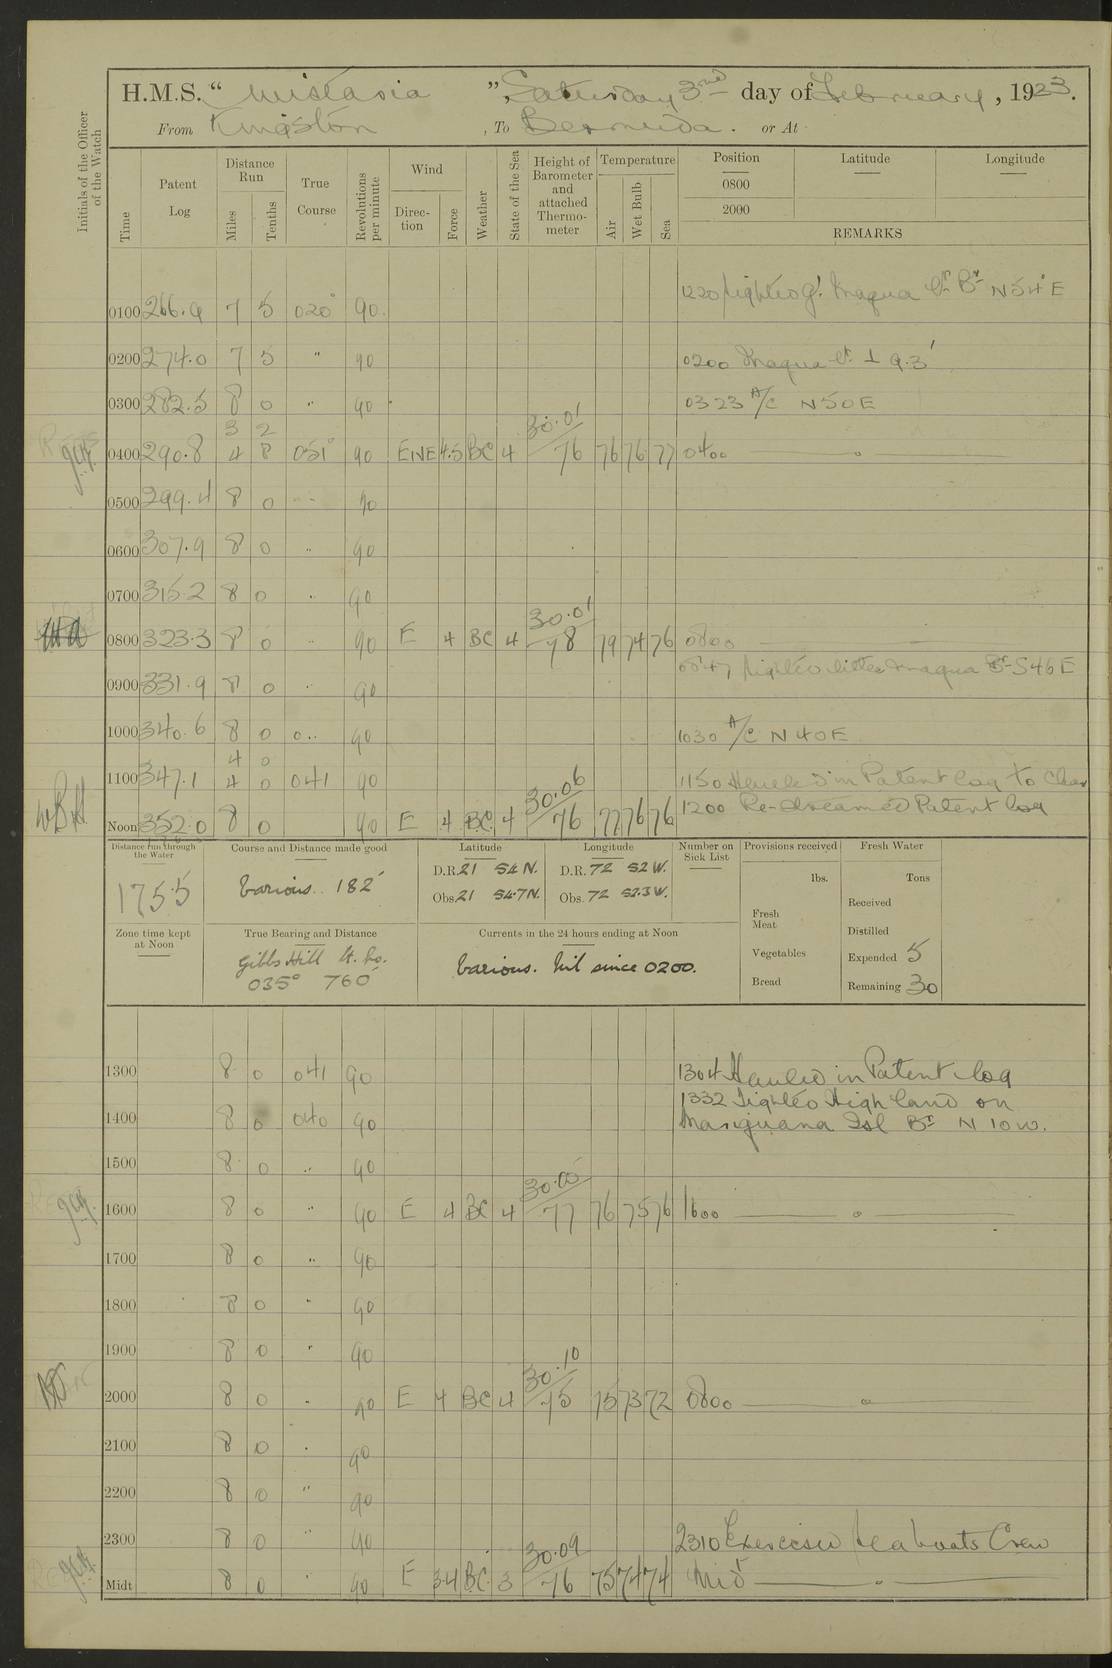 H.M.S. “ Wistaria ”, Saturday 3rd day of February, 1923.
From Kingston, To Bermuda. or At
Initials of the Officer of the Watch
Time Patent Log Distance Run Miles Tenths True Course Revolutions per minute Wind Direction Force Weather State of the Sea Height of Barometer and attached Thermometer Temperature Air Wet Bulb Sea Position Latitude Longitude
0800
2000
REMARKS
1220 Sighted Gt. Inagua Lt. Br N54°E
0100 266.9 7 5 020° 90
0200 274.0 7 5 " 90 0200 Inagua Lt ⊥ 9.3'
0300 282.5 8 0 " 90 0323 A/C N50E
3 2
0400 290.8 4 8 051° 90 ENE 4.5 BC 4 30.01/76 76 76 77 0400
0500 299.4 8 0 " 90
0600 307.9 8 0 " 90
0700 315.2 8 0 " 90
0800 323.3 8 0 " 90 E 4 BC 4 30.01/78 79 74 76 0800
0847 Sighted little Inagua Br S46E
0900 331.9 8 0 " 90
1000 340.6 8 0 " 90 1030 A/C N40E
4 0
1100 347.1 4 0 041 90 1150 Hauled in Patent log to Clear
Noon 352.0 8 0 90 E 4 BC 4 30.06/76 77 76 76 1200 Re-Streamed Patent log
WBH
Distance run through the Water
175.5
Course and Distance made good
Various. 182'
Latitude
D.R. 21 54 N.
Obs. 21 54.7 N.
Longitude
D.R. 72 52 W.
Obs. 72 52.3 W.
Number on Sick List
Provisions received
lbs.
Fresh Meat
Vegetables
Bread
Fresh Water
Tons
Received
Distilled
Expended 5
Remaining 30
Zone time kept at Noon
True Bearing and Distance
Gibbs Hill Lt. Ho.
035° 760'
Currents in the 24 hours ending at Noon
Various. Nil since 0200.
1300 8 0 041 90 1304 Hauled in Patent log
1332 Sighted High land on
1400 8 0 040 90 Mariguana Isl Br N 10 W.
1500 8 0 " 90
1600 8 0 " 90 E 4 BC 4 30.05/77 76 75 76 1600
1700 8 0 " 90
1800 8 0 " 90
1900 8 0 " 90
2000 8 0 " 90 E 4 BC 4 30.10/75 75 73 72 0800
2100 8 0 " 90
2200 8 0 " 90
2300 8 0 " 90 2310 Exercised Seaboats Crew
Midt 8 0 " 90 E 3-4 BC 3 30.09/76 75 74 74 Midt